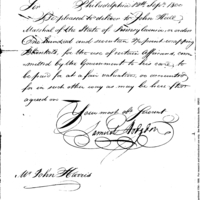 Sir Philadelphia Sepr. 1800
Be pleased to deliver to John Hall
Marshal of the State of Pennsylvania or order
One hundred and wrapping
Blankets, for the use of certain
committed by the Government to his care, to
be paid for at a fair valuation or accounted
for in such other way as may be here after
agreed on
Your most ob Servant
Samuel Hodgdon
Mr John Harris